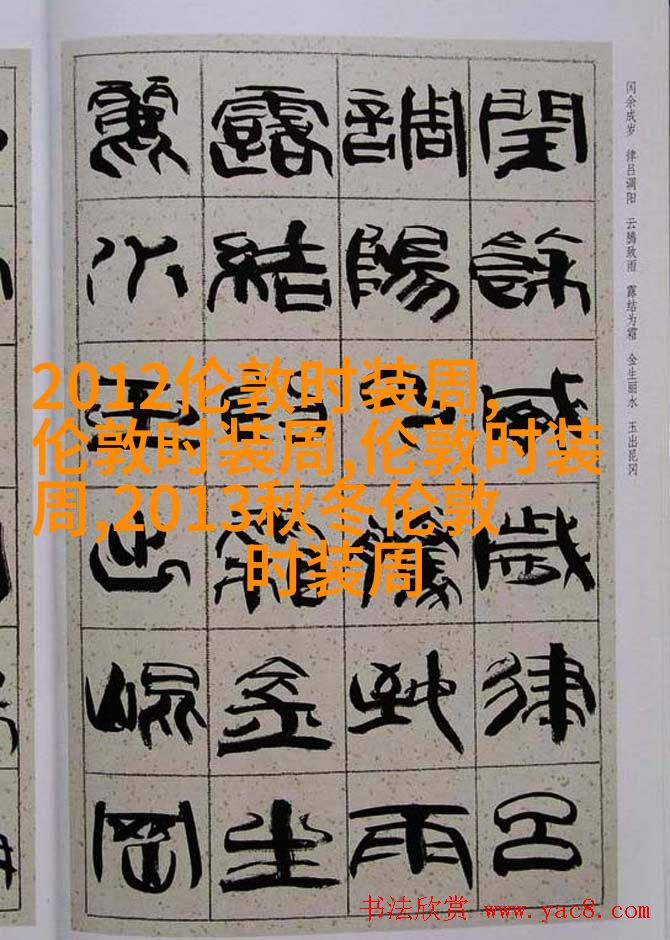 闰余成岁 律吕调阳 云腾致雨 露结为霜 金生丽水 玉出昆冈
閏餘成歲律呂
調陽騰致雨
露結金生
麗水玉出崐岡
2012伦敦时装周,
伦敦时装周,伦敦时装
周,2013秋冬伦敦
时装周
书法欣赏 www.yac8.com